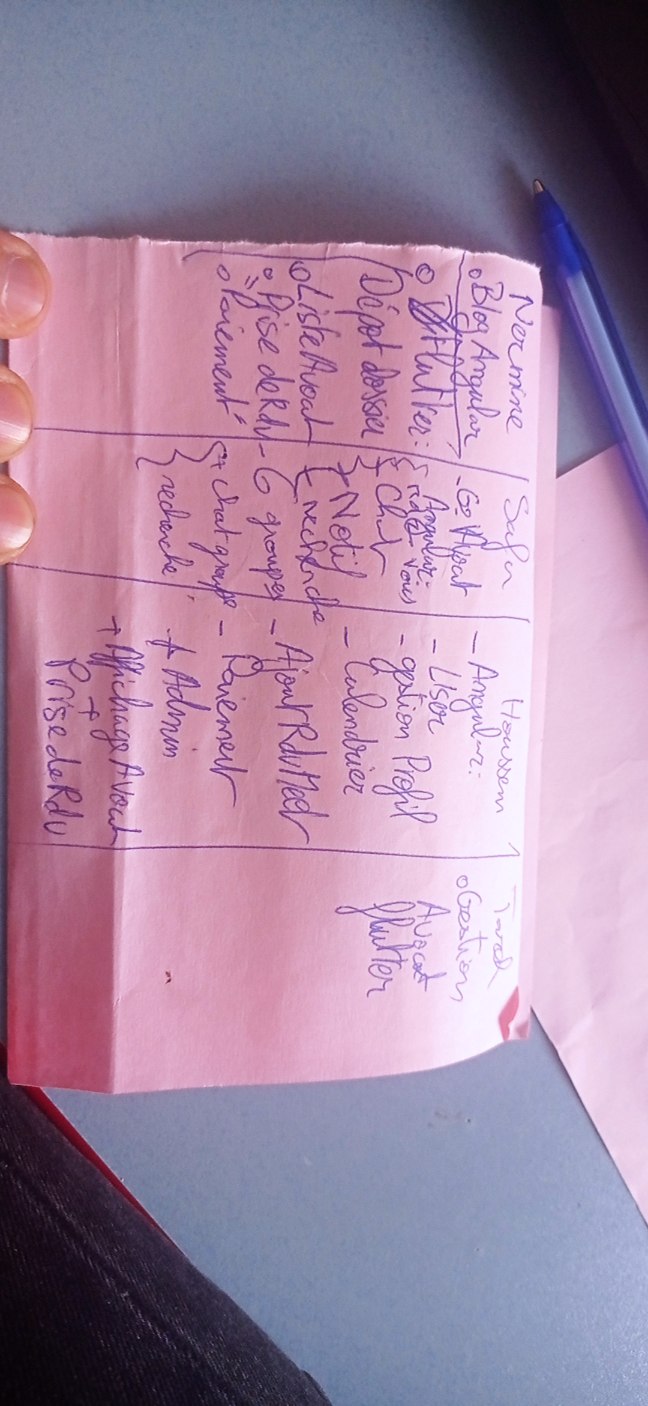 Nermine
o Blog Angular
o Flutter:
Dépot dossier
o Liste Avocat
o Prise de Rdv
o "Paiement"
Safa
- G Avocat
Angular:
rdez vous
Chat
+ Notif
recherche
- G groupes
+ chat groupe
recherche
Houssem
- Angular:
- User
- gestion Profil
- Calendrier
- Ajout Rdv Meet
- Paiement
+ Admin
+ Affichage Avocat
+
Prise de Rdv
Tarek
o Gestion
Avocat
flutter